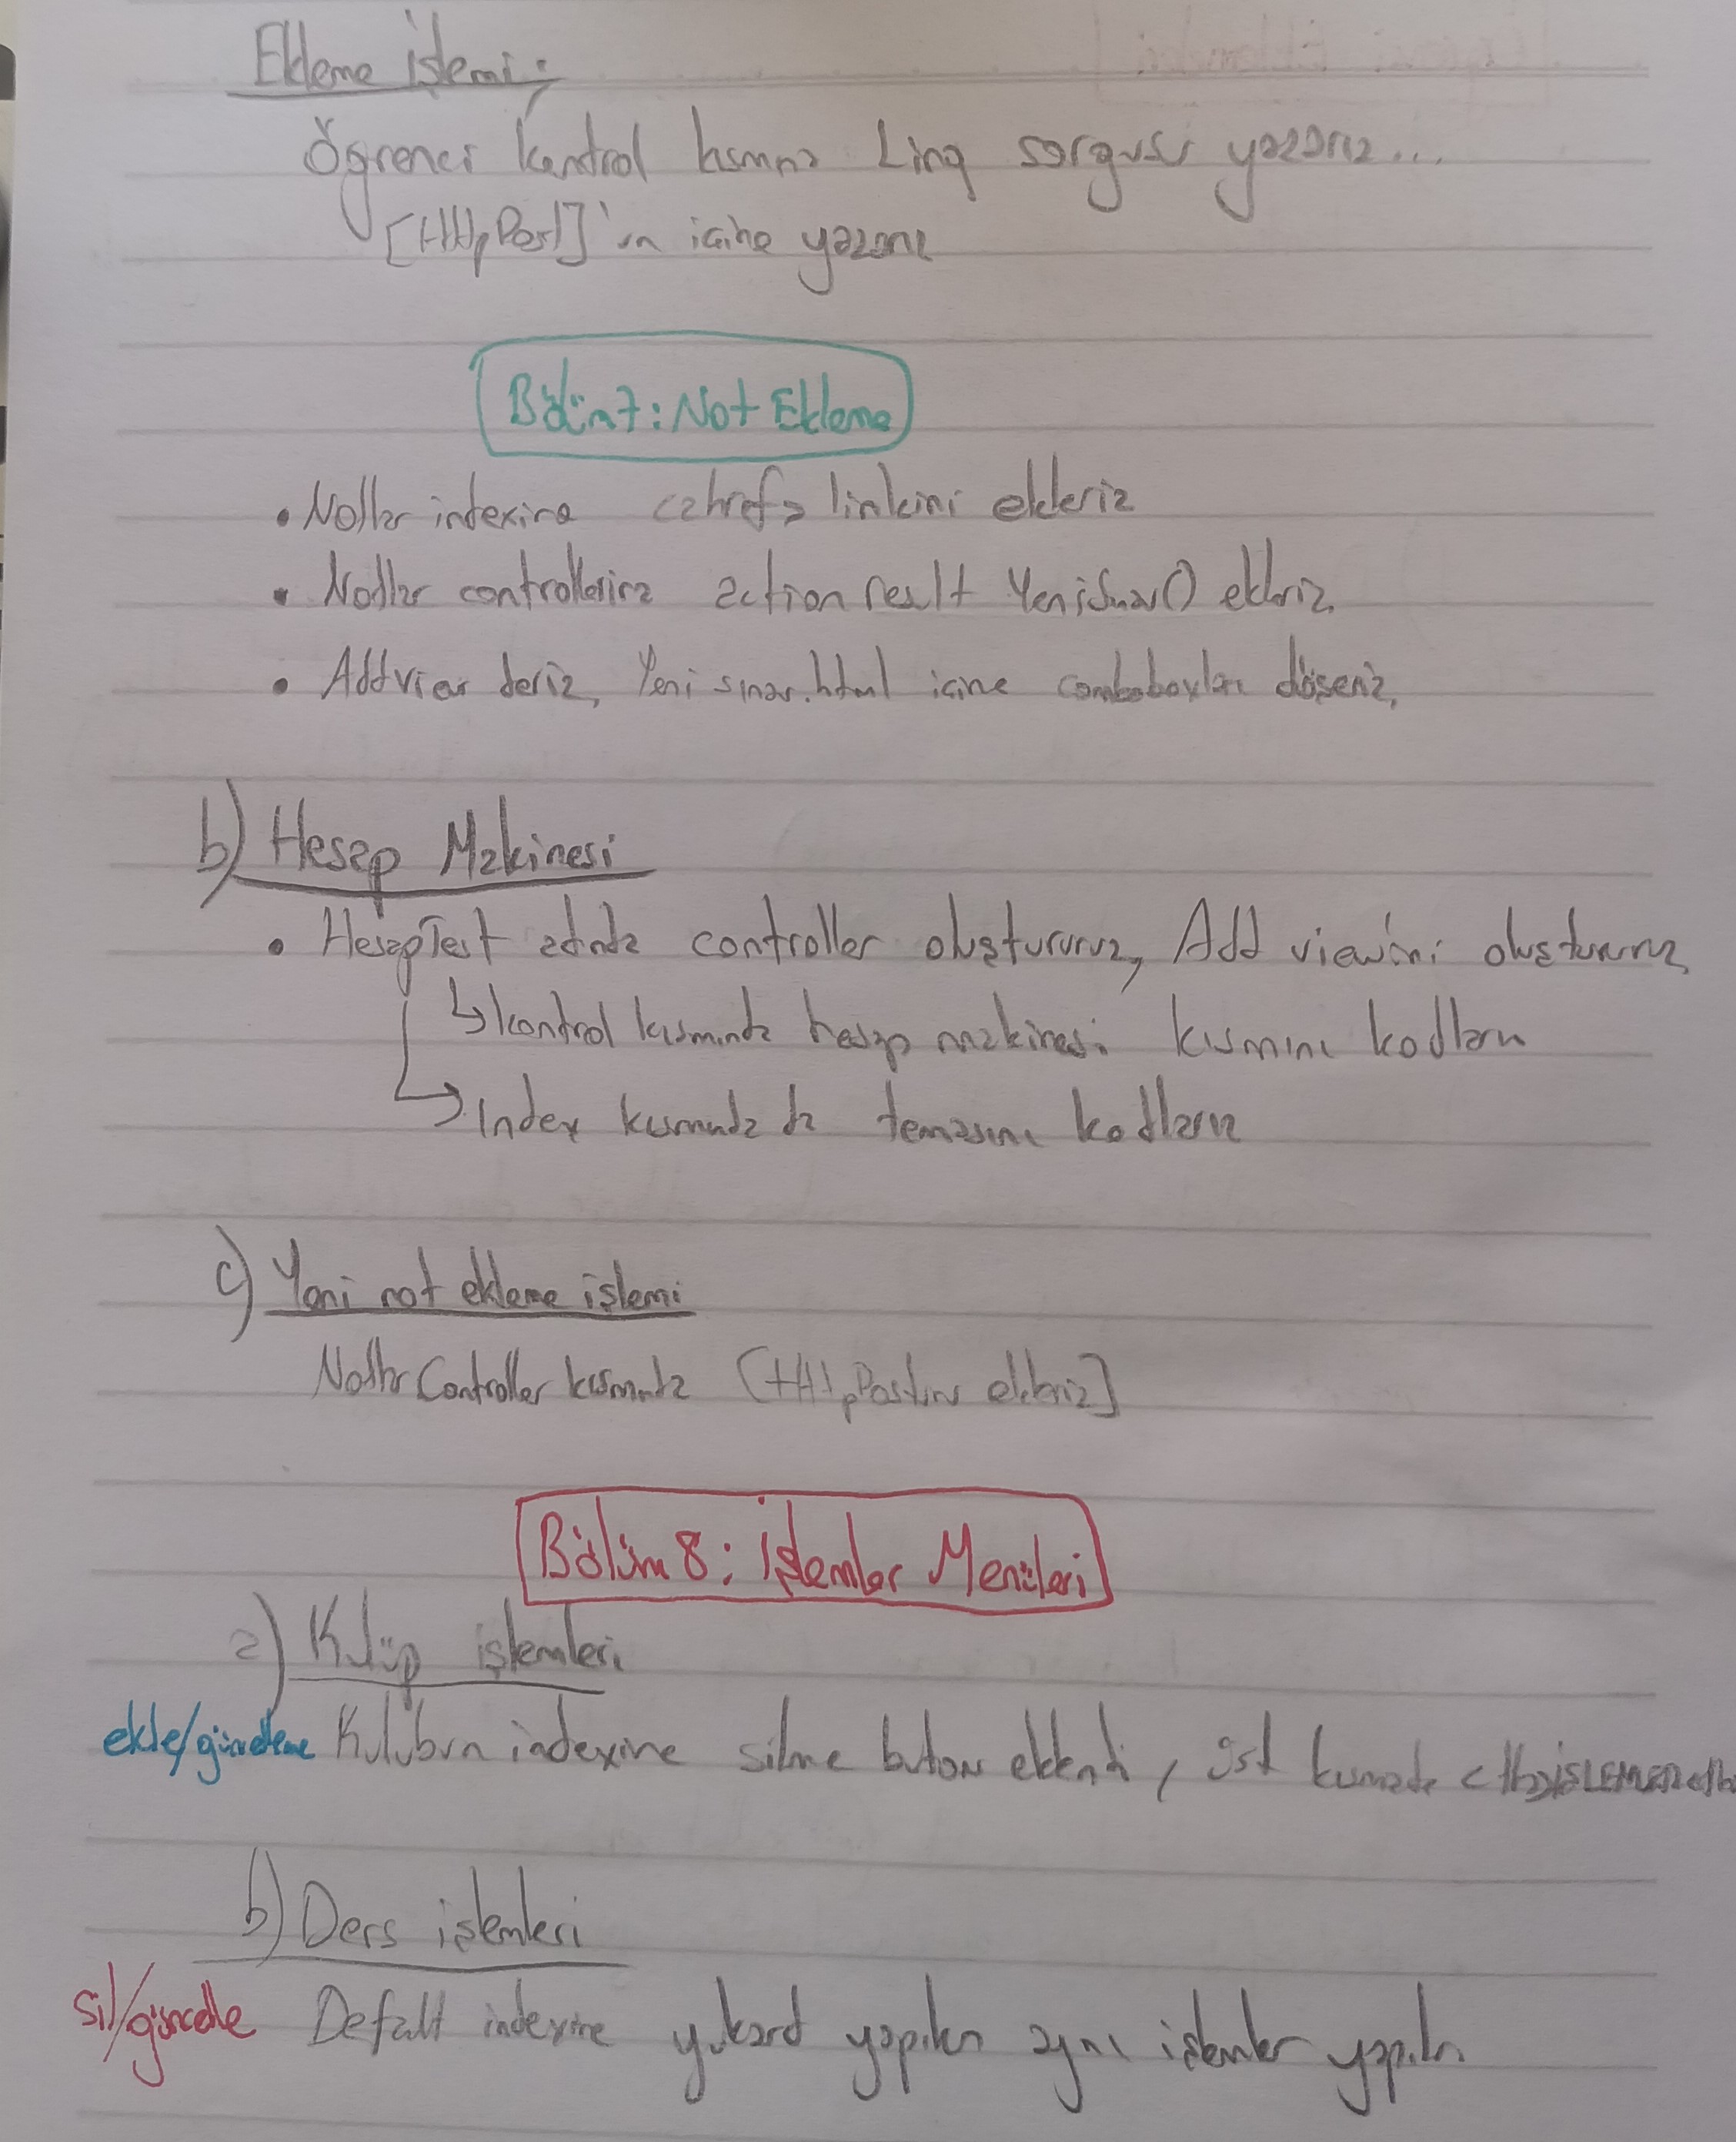 Ekleme işlemi:
Öğrenci kontrol kısmına Linq sorgusu yazarız...
[HttpPost]'ın içine yazarız
Bölüm 7: Not Ekleme
• Notlar indexine <ahref> linkini ekleriz
• Notlar controllerına actionresult YeniSınav() ekleriz.
• Addview deriz, Yeni sınav.html içine comboboxları döşeriz,
b) Hesap Makinesi
• HesapTest adında controller oluştururuz, Add view'ini oluştururuz
↳ kontrol kısmında hesap makinesi kısmını kodlarız
↳ Index kısmında da temasını kodlarız
c) Yeni not ekleme işlemi
Notlar Controller kısmında [HttpPostunu ekleriz]
Bölüm 8: İşlemler Menüleri
a) Kulüp işlemleri
ekle/güncelleme Kulubun indexine silme butonu eklendi, üst kısmada <th>İŞLEMLER
b) Ders işlemleri
sil/güncelle Default indexine yukard yapılan aynı işlemler yapılır